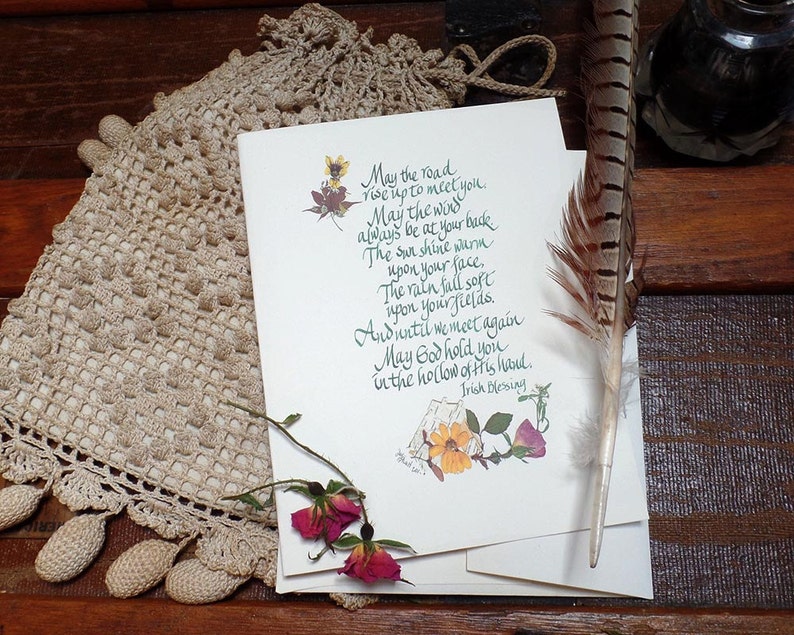 May the road
rise up to meet you.
May the wind
always be at your back
The sun shine warm
upon your face,
The rain full soft
upon your fields.
And until we meet again
May God hold you
in the hollow of His hand.
Irish Blessing